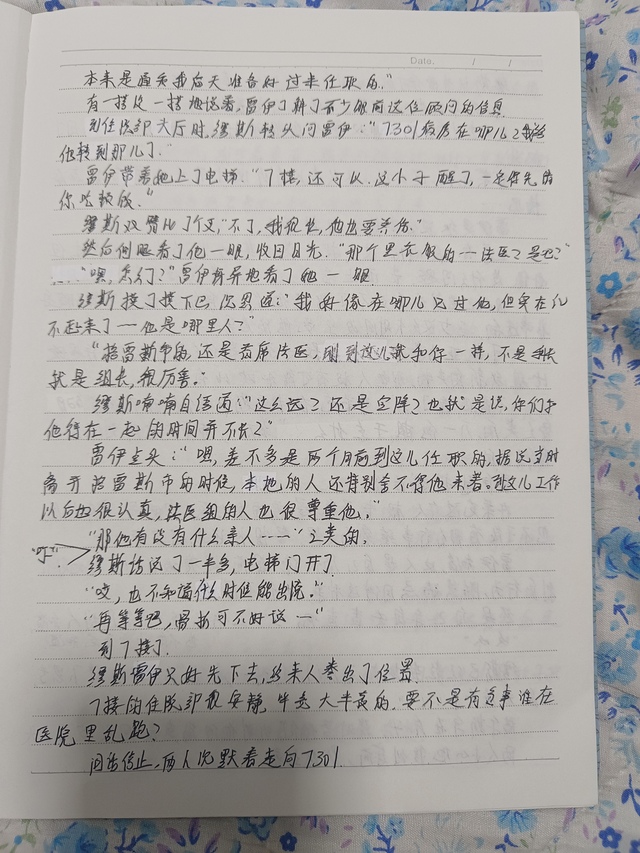 Date. / /
本来是通知我后天准备好过来任职的。”
有一搭没一搭地说着，雷伊了解了不少眼前这位顾问的信息.
到住院部大厅时，缪斯转头问雷伊：“7301病房在哪儿？我给
他转到那儿了.”
雷伊带着他上了电梯.“7楼，还可以.这小子醒了，一定得先请
你吃顿饭.”
缪斯双臂比了个叉，“不了，我很忙，他也要养伤.”
然后侧眼看了他一眼，收回目光.“那个黑衣服的一法医？是吧？”
“嗯，怎么了？”雷伊诧异地看了他一眼.
缪斯摸了摸下巴，沉思道：“我好像在哪儿见过他，但实在记
不起来了一他是哪里人？”
“格雷斯市的，还是首席法医，刚到这儿就和你一样，不是队长
就是组长，很厉害.”
缪斯喃喃自语道：“这么远？还是空降？也就是说，你们和
他待在一起的时间并不长？”
雷伊点头：“嗯，差不多是两个月前到这儿任职的，据说当时
离开格雷斯市的时候，本地的人还特别舍不得他来着。到这儿工作
以后也很认真，法医组的人也很尊重他。”
“那他有没有什么亲人……”之类的.
“叮”.
缪斯话说了一半多，电梯门开了.
“哎，也不知道什么时候能出院.”
“再等等吧，骨折可不好说…”
到7楼了.
缪斯雷伊只好先下去，给来人空出了位置.
7楼的住院部很安静，毕竟大半夜的，要不是有急事谁在
医院里乱跑？
问话停止，两人沉默着走向7301.